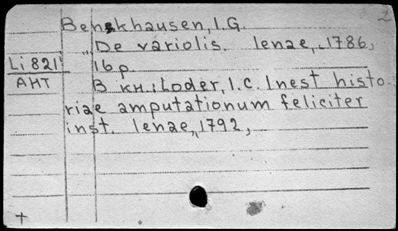 2
Benekhausen, I.G.
„De variolis. Ienae, 1786,
Li 821 16 p.
АНТ В кн.: Loder, I.C. Inest histo-
riae amputationum feliciter
inst. Ienae, 1792,
+